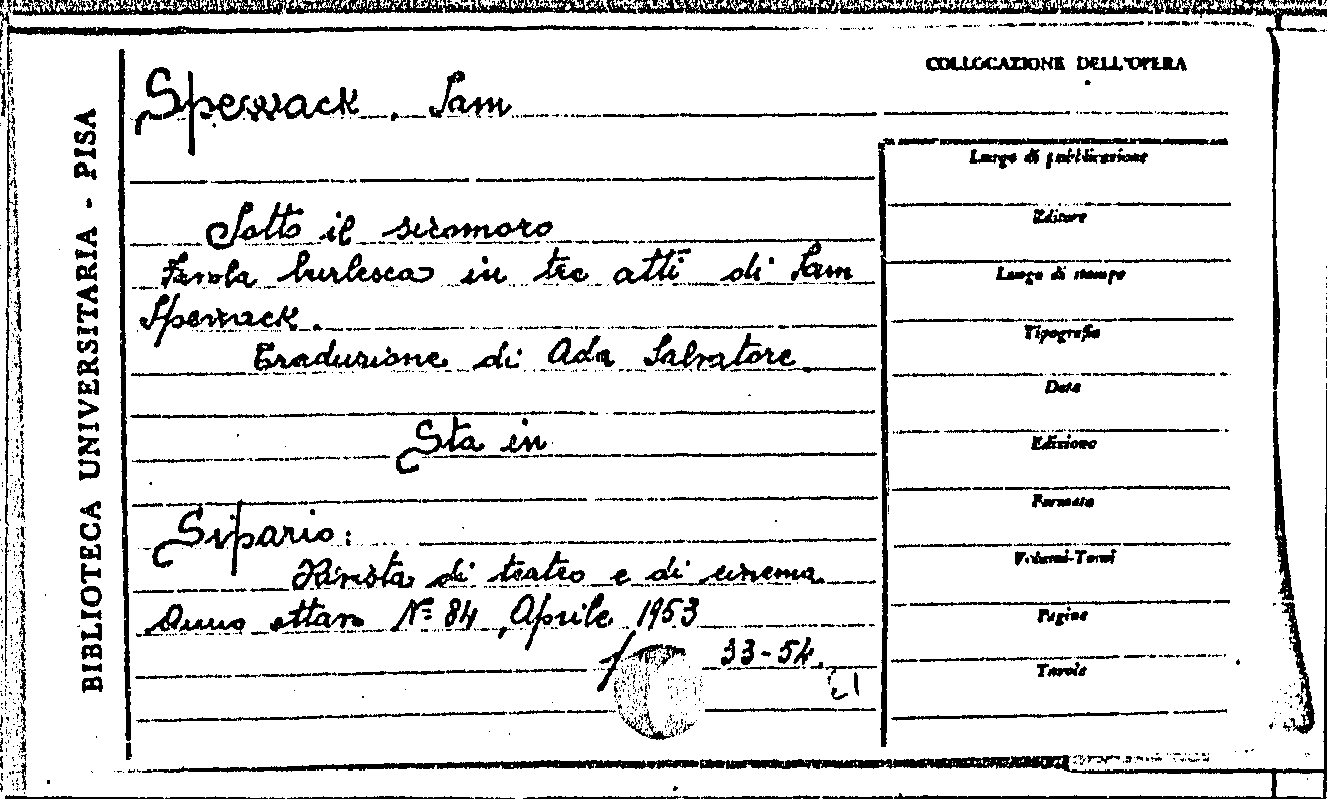 BIBLIOTECA UNIVERSITARIA - PISA
COLLOCAZIONE DELL'OPERA
Spewack, Sam
Sotto il sicomoro
Favola burlesca in tre atti di Sam
Spewack.
Traduzione di Ada Salvatore
Sta in
Sipario:
Rivista di teatro e di cinema
Anno ottavo N° 84, Aprile 1953
33-54.
Luogo di pubblicazione
Editore
Luogo di stampa
Tipografia
Data
Edizione
Formato
Volumi-Tomi
Pagine
Tavole